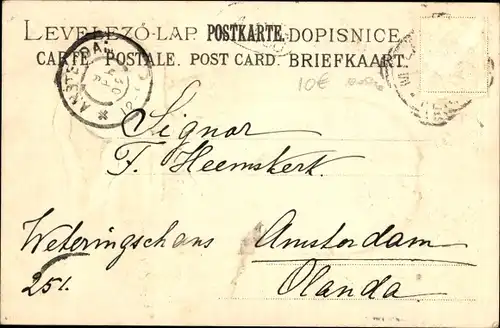 LEVELEZÖ-LAP. POSTKARTE. DOPISNICE.
CARTE POSTALE. POST CARD. BRIEFKAART.
10€
Signor
F. Heemskerk.
Weteringschans Amsterdam
251. Olanda.